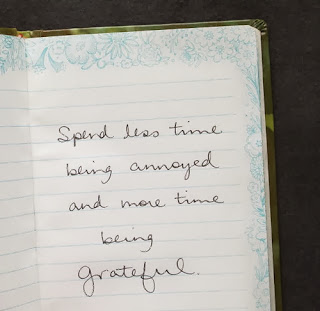 Spend less time
being annoyed
and more time
being
grateful.